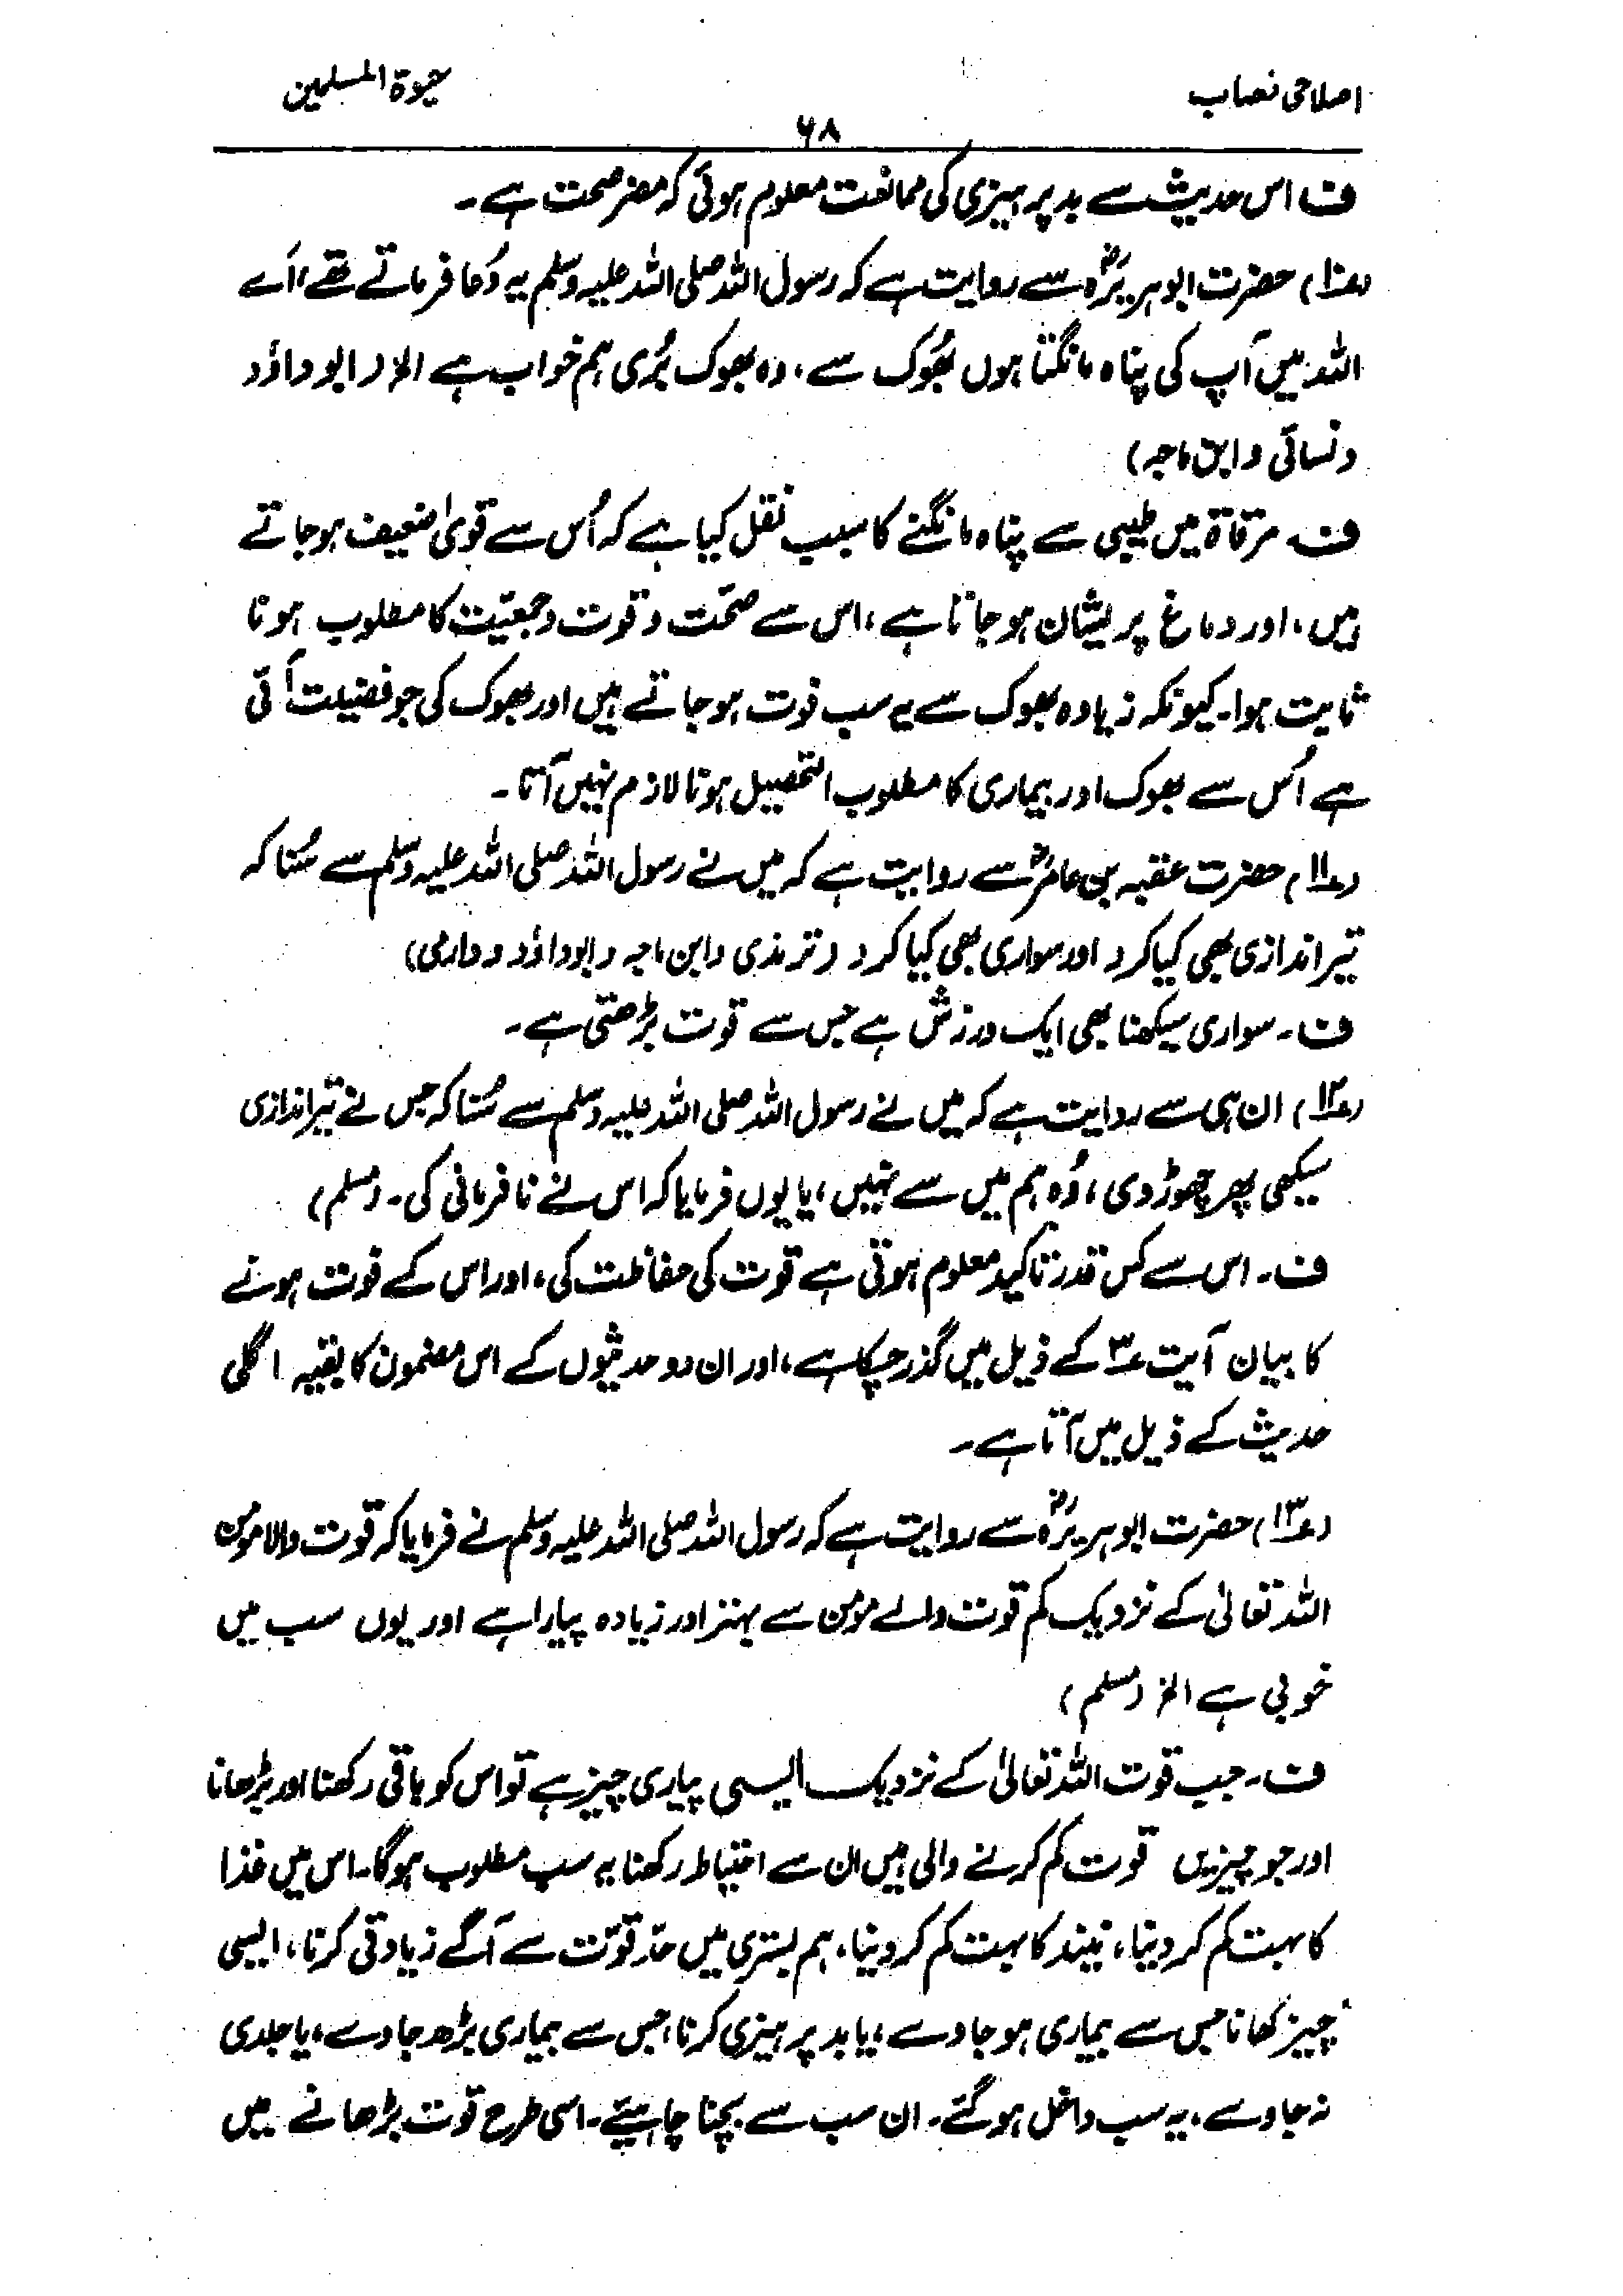 اصلاحی نصاب
حیٰوۃ المسلمین
۶۸
ف اس حدیث سے بد پرہیزی کی ممانعت معلوم ہوئی کہ مضر صحت ہے۔
(ع۱۰) حضرت ابوہریرہؓ سے روایت ہے کہ رسول اللہ صلی اللہ علیہ وسلم یہ دُعا فرماتے تھے، اَے
اللہ میں آپ کی پناہ مانگتا ہوں بھُوک سے، وہ بھوک بُری ہم خواب ہے الخ (ابو داؤد
و نسائی و ابن ماجہ)
ف۔ مرقاۃ میں طیبی سے پناہ مانگنے کا سبب نقل کیا ہے کہ اُس سے قویٰ ضعیف ہو جاتے
ہیں، اور دماغ پریشان ہو جاتا ہے، اس سے صحّت و قوت و جمعیّت کا مطلوب ہونا
ثابت ہوا۔ کیونکہ زیادہ بھوک سے یہ سب فوت ہو جاتے ہیں اور بھوک کی جو فضیلت آئی
ہے اُس سے بھوک اور بیماری کا مطلوب التحصیل ہونا لازم نہیں آتا۔
(ع۱۱) حضرت عقبہ بن عامرؓ سے روایت ہے کہ میں نے رسول اللہ صلی اللہ علیہ وسلم سے سُنا کہ
تیر اندازی بھی کیا کرو اور سواری بھی کیا کرو (ترمذی و ابن ماجہ و ابوداؤد و دارمی)
ف۔ سواری سیکھنا بھی ایک ورزش ہے جس سے قوت بڑھتی ہے۔
(ع۱۲) ان ہی سے روایت ہے کہ میں نے رسول اللہ صلی اللہ علیہ وسلم سے سُنا کہ جس نے تیر اندازی
سیکھی پھر چھوڑ دی، وُہ ہم میں سے نہیں، یا یوں فرمایا کہ اس نے نافرمانی کی۔ (مسلم)
ف۔ اس سے کس قدر تاکید معلوم ہوتی ہے قوت کی حفاظت کی، اور اس کے فوت ہونے
کا بیان آیت ع۳ کے ذیل میں گذر چکا ہے، اور ان دو حدیثوں کے اس مضمون کا بقیہ اگلی
حدیث کے ذیل میں آتا ہے۔
(ع۱۳) حضرت ابوہریرہؓ سے روایت ہے کہ رسول اللہ صلی اللہ علیہ وسلم نے فرمایا کہ قوت والا مومن
اللہ تعالیٰ کے نزدیک کم قوت والے مومن سے بہتر اور زیادہ پیارا ہے اور یوں سب میں
خوبی ہے الخ (مسلم)
ف۔ جب قوت اللہ تعالیٰ کے نزدیک ایسی پیاری چیز ہے تو اس کو باقی رکھنا اور بڑھانا
اور جو چیزیں قوت کم کرنے والی ہیں ان سے احتیاط رکھنا یہ سب مطلوب ہوگا۔ اس میں غذا
کا بہت کم کر دینا، نیند کا بہت کم کر دینا، ہم بستری میں حدِّ قوّت سے آگے زیادتی کرنا، ایسی
چیز کھانا جس سے بیماری ہو جاوے، یا بد پرہیزی کرنا، جس سے بیماری بڑھ جاوے، یا جلدی
نہ جاوے، یہ سب داخل ہو گئے۔ ان سب سے بچنا چاہیئے۔ اسی طرح قوت بڑھانے میں